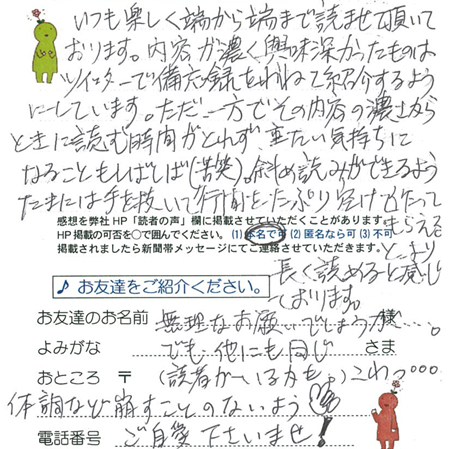 いつも楽しく端から端まで読ませて頂いて
おります。内容が濃く興味深かったものは
ツイッターで備忘録をかねて紹介するよう
にしています。ただ一方でその内容の濃さから
ときに読む時間がとれず重たい気持ちに
なることもしばしば(苦笑)。斜め読みができるよう
たまには手を抜いて行間をたっぷり空けてたって
もらえる
と、より
長く読めると感じ
ております。
感想を弊社HP「読者の声」欄に掲載させていただくことがあります。
HP掲載の可否を○で囲んでください。(1)本名で可 (2)匿名なら可 (3)不可
掲載されましたら新聞帯メッセージにてご連絡させていただきます。
♪ お友達をご紹介ください。
お友達のお名前 無理なお願いでしょうが…。様
よみがな でも他にも同じ さま
おところ 〒 (読者がいるかも。)こわっ…
体調など崩すことのないよう
電話番号 ご自愛下さいませ!